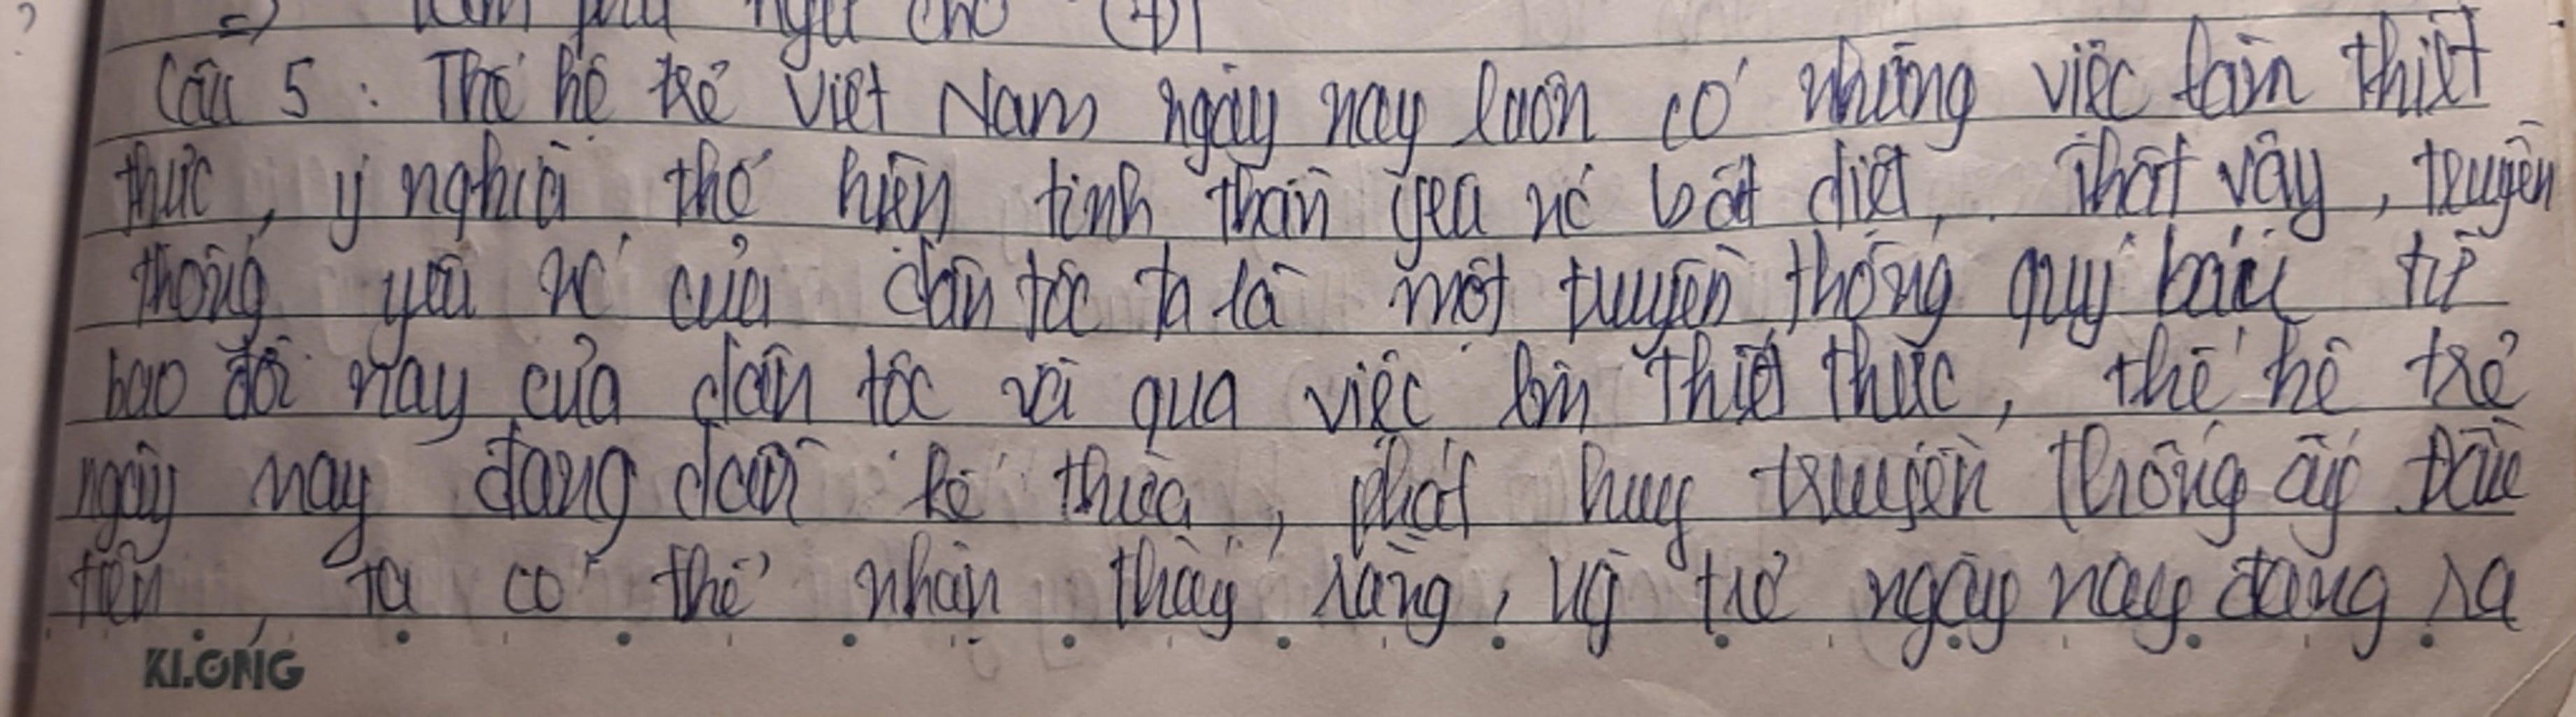 => làm phụ ngữ cho (4)
Câu 5 : Thế hệ trẻ Việt Nam ngày nay luôn có những việc làm thiết
thực, ý nghĩa thể hiện tinh thần yêu nc bất diệt. Thật vậy, truyền
thống yêu nc của dân tộc ta là một truyền thống quý báu từ
bao đời nay của dân tộc và qua việc làm thiết thực, thế hệ trẻ
ngày nay đang dần kế thừa, phát huy truyền thống ấy. Đầu
tiên ta có thể nhận thấy rằng, ng trẻ ngày nay đang ra
KLONG